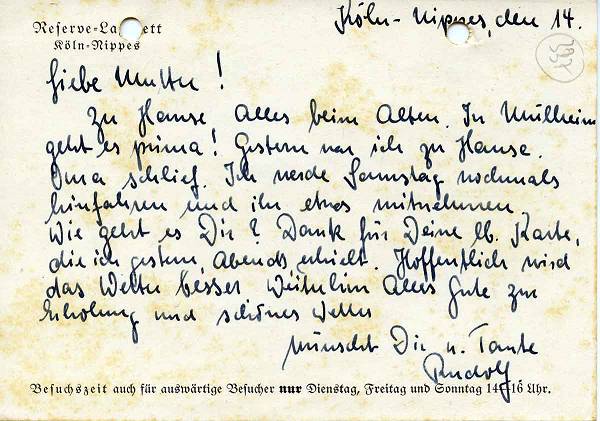 Reserve-Lazarett
Köln-Nippes
Köln-Nippes, den 14.
Liebe Mutter!
Zu Hause Alles beim Alten. In Mülheim
geht es prima! Gestern war ich zu Hause.
Oma schlief. Ich werde Samstag nochmals
hinfahren und ihr etwas mitnehmen.
Wie geht es Dir? Dank für Deine lb. Karte,
die ich gestern Abends erhielt. Hoffentlich wird
das Wetter besser. Weiterhin Alles Gute zur
Erholung und schönes Wetter
wünscht Dir u. Tante
Rudolf.
Besuchszeit auch für auswärtige Besucher nur Dienstag, Freitag und Sonntag 14-16 Uhr.